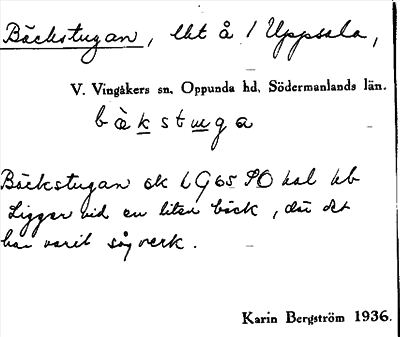 Bäckstugan, lht å / Uppsala,
V. Vingåkers sn, Oppunda hd, Södermanlands län.
bæ̀kstuga
Bäckstugan ek L G 65 SO kal kb
Ligger vid en liten bäck, där det
har varit sågverk.
Karin Bergström 1936.